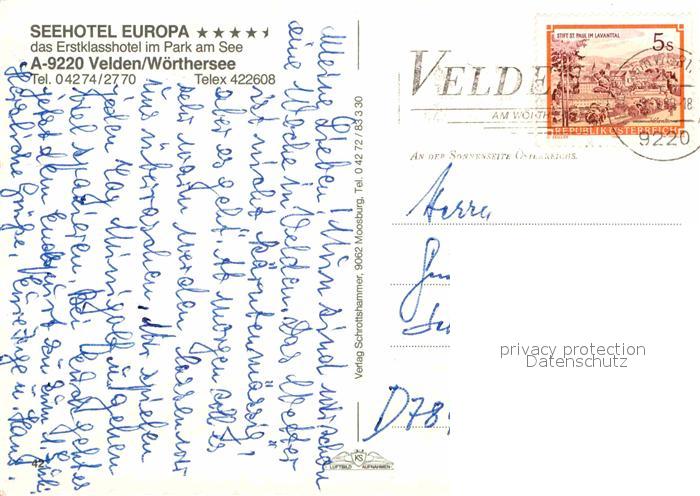 SEEHOTEL EUROPA ★★★★
das Erstklasshotel im Park am See
A-9220 Velden/Wörthersee
Tel. 04274/2770 Telex 422608
Meine Lieben! Nun sind wir schon
eine Woche in Velden. Das Wetter
ist nicht kärntenmässig,
aber es geht. Ab morgen soll es
sehr warm werden. Lassen wir
uns überraschen. Wir spielen
jeden Tag Minigolf u. gehen
viel spazieren.
Herzliche Grüße,
42
Verlag Schrottshammer, 9062 Moosburg, Tel. 0 42 72 / 83 3 30
KS
LUFTBILD AUFNAHMEN
STIFT ST. PAUL IM LAVANTTAL
5 S
REPUBLIK ÖSTERREICH
VELDE
AM WÖRTH
AN DER SONNENSEITE ÖSTERREICHS.
9220
Herrn
D78
privacy protection
Datenschutz